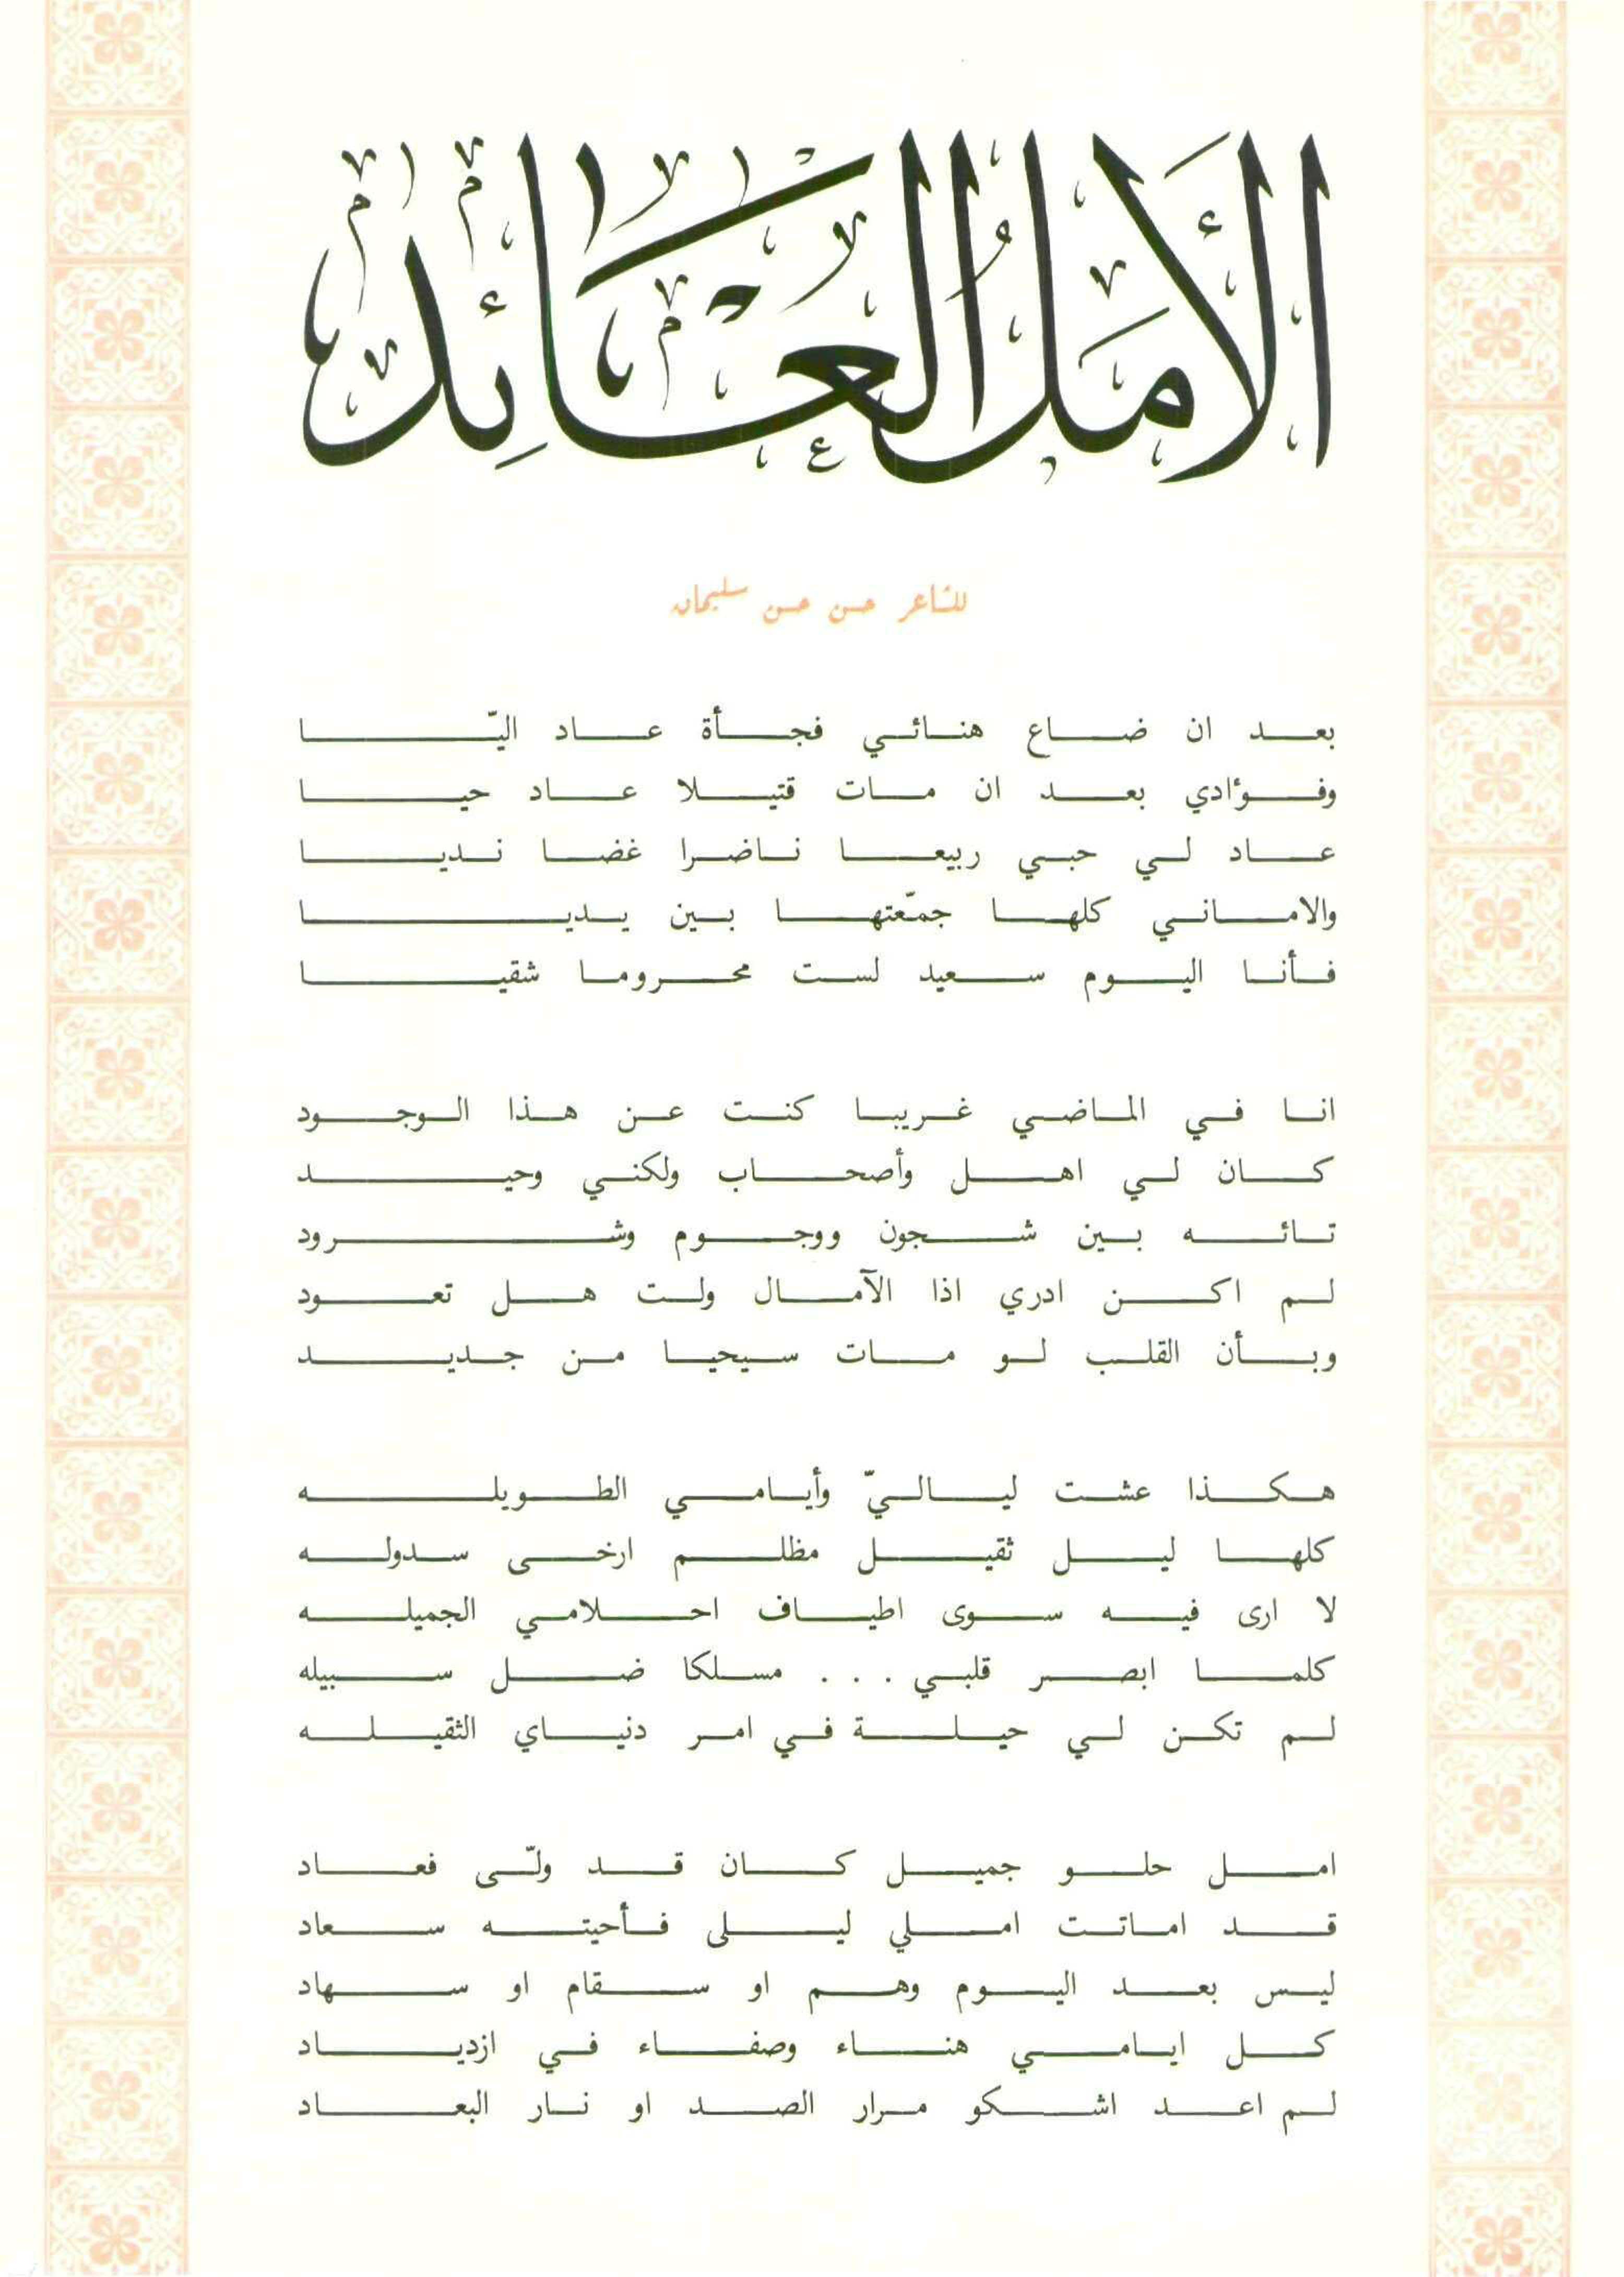 الأمل العائد
للشاعر حسن حسن سليمان
بعد ان ضاع هنائي فجأة عاد اليّا
وفؤادي بعد ان مات قتيلا عاد حيا
عاد لي حبي ربيعا ناضرا غضا نديا
والاماني كلها جمّعتها بين يديا
فأنا اليوم سعيد لست محروما شقيا
انا في الماضي غريبا كنت عن هذا الوجود
كان لي اهل وأصحاب ولكني وحيد
تائه بين شجون ووجوم وشرود
لم اكن ادري اذا الآمال ولت هل تعود
وبأن القلب لو مات سيحيا من جديد
هكذا عشت لياليّ وأيامي الطويله
كلها ليل ثقيل مظلم ارخى سدوله
لا ارى فيه سوى اطياف احلامي الجميله
كلما ابصر قلبي . . . مسلكا ضل سبيله
لم تكن لي حيلة في امر دنياي الثقيله
امل حلو جميل كان قد ولّى فعاد
قد اماتت املي ليلى فأحيته سعاد
ليس بعد اليوم وهم او سقام او سهاد
كل ايامي هناء وصفاء في ازدياد
لم اعد اشكو مرار الصد او نار البعاد